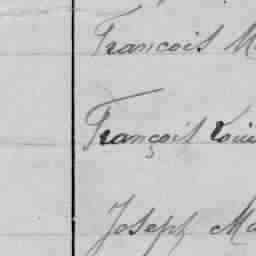 Francois M
François Loui
Joseph Ma